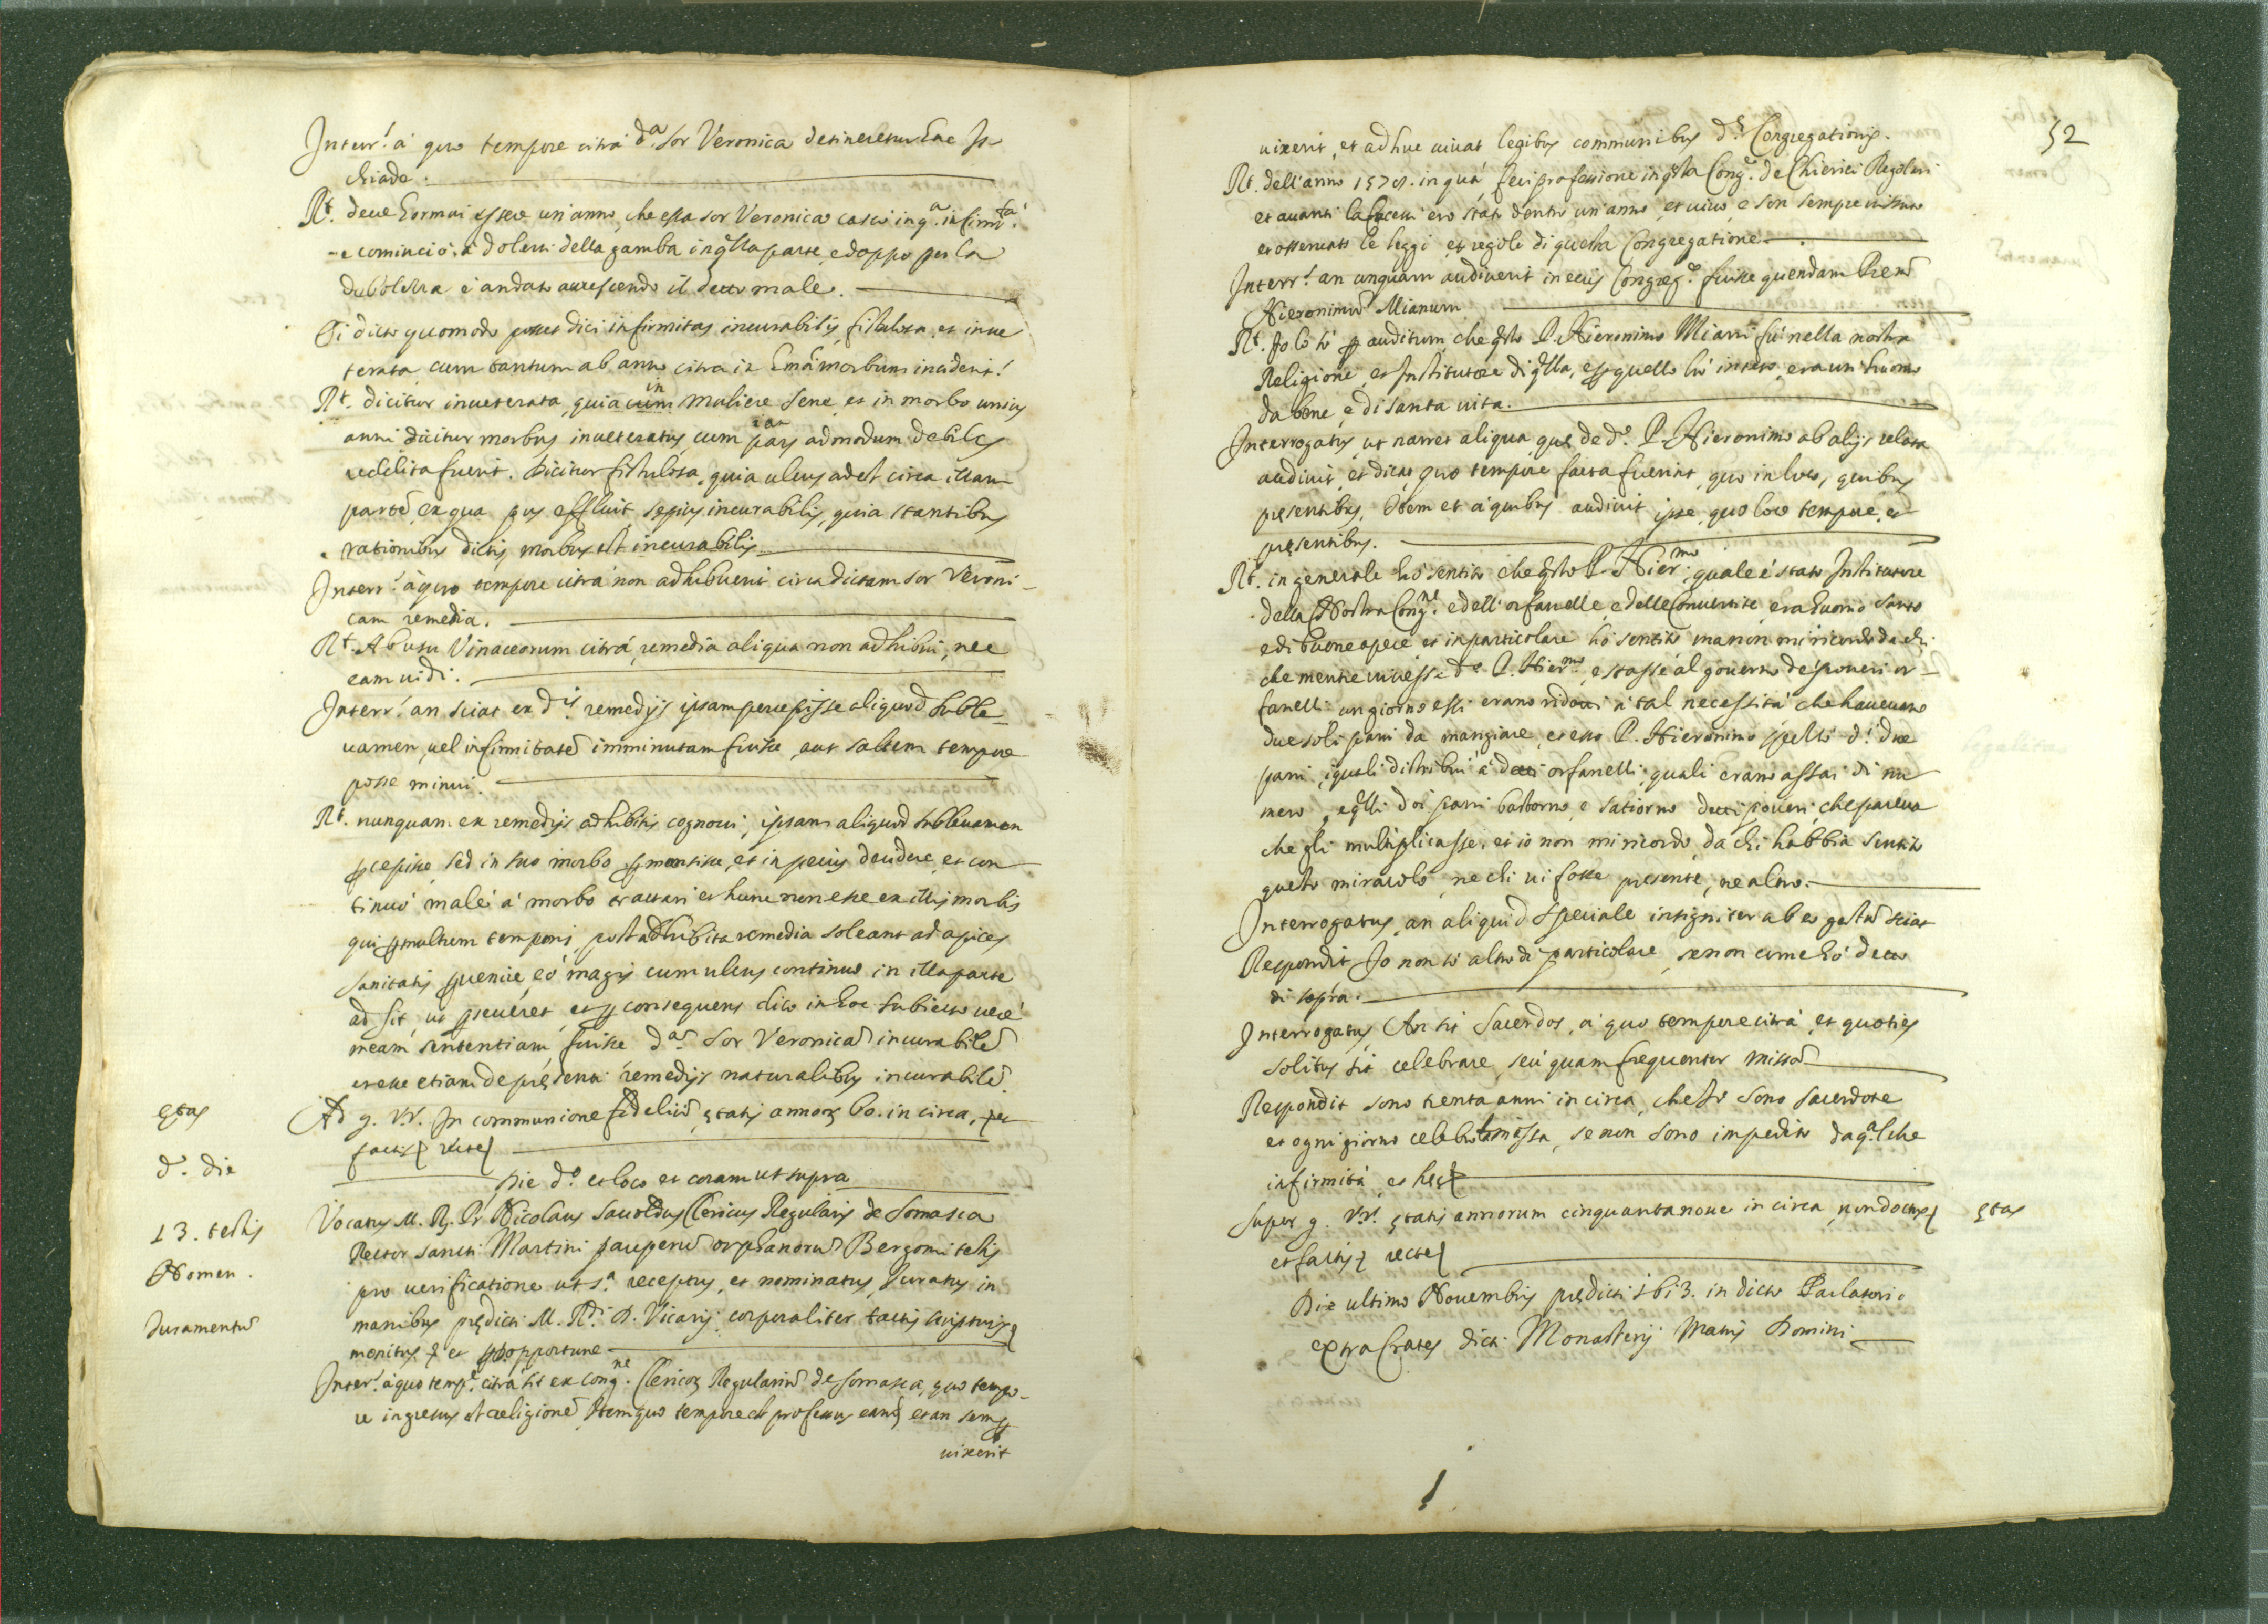 Interr.' à quo tempore citrà d.a Sor Veronica detineretur hac Is-
chiade.
R.t deue hormai essere un'anno, che essa sor Veronica cascò in q.a infirm.tà
e cominciò à dolersi della gamba in q'lla parte, e doppo per la
debolezza è andato accrescendo il detto male.
Ei dicto quomodo posset dici infirmitas incurabilis, fistulosa, et inue
terata, cum tantum ab anno citra in morbum inciderit!
R.t dicitur inueterata, quia in muliere sene, et in morbo unius
anni dicitur morbus inueteratus, cum pars admodum debilis
reddita fuerit. Dicitur fistulosa, quia ulcus adest circa illam
partē, ex qua pus effluit sepius, incurabilis, quia stantibus
rationibus dictis morbus est incurabilis
Interr.' à quo tempore citrà non adhibuerit circa dictam Sor Veroni-
cam remedia.
R.t Ab usu Vinaceorum citrà, remedia aliqua non adhibui, nec
eam uidi.
Interr.' an sciat ex d.is remedijs ipsam percepisse aliquod suble-
uamen, uel infirmitatē imminutam fuisse, aut saltem tempore
posse minui.
R.t nunquam ex remedijs adhibitis cognoui, ipsam aliquod subleuamen
p'cepisse, sed in suo morbo p'mansisse, et in peius tendere, et con-
tinuò malè à morbo tractari et hunc non esse ex illis morbis
qui p' multum temporis, post adhibita remedia soleant ad apices
sanitatis p'uenire, eò magis cum ulcus continuo in illa parte
adsit, ut p'seueret, et p' consequens dico in hoc subiecto uerè
meam sententiam, fuisse d.ā Sor Veronicā incurabilē
et esse etiam de pręsenti remedijs naturalibus incurabilē.
ętas
Ad g. v.r. In communione fideliū, ętatis annor. 60. in circa, per
factis recte
d.o die
Die d.o et loco et coram ut supra
13. testis
Vocatus M. R. P.r Nicolaus Sauoldus Clericus Regularis de Somasca
Rector sancti Martini pauperū orphanorū Bergomi testis
Nomen.
pro uerificatione ut s.a receptus, et nominatus, Iuratus in
Iuramentū
manibus prędicti M. R.di D. Vicarij corporaliter tactis scripturis
monitus et opportune
Interr.' à quo temp.e citrà sit ex Cong.ne Clericor. Regulariū de somasca, quo tempo-
re ingressus est religionē, Item quo tempore est professus eam, et an semp'
uixerit
52
uixerit, et adhuc uiuat legibus communibus d.ę Congregationis.
R.t dell'anno 1578. in quà feci professione in q'sta Cong.e de Chierici Regolari
et auanti la facessi ero stato dentro un'anno, et uiuo, e son sempre uissuto
et osseruato le leggi, et regole di questa Congregatione.
Interr.' an unquam audiuerit in eius Congreg.e fuisse quendam Prem
Hieronimū Mianum
R.t Io lo sò p' auditum, che q'sto P. Hieronimo Miani fù nella nostra
Religione, et Institutore di q'lla, et p' quello hò inteso, era un huomo
da bene, e di santa uita.
Interrogatus, ut narret aliqua, quę de d.o P. Hieronimo ab alijs relata
audiuit, et dicat, quo tempore facta fuerint, quo in loco, quibus
pręsentibus, Item et à quibus audiuit ipse, quo loco tempore, et
pręsentibus.
R.t in generale hò sentito che q'sto P. Hier.mo, quale è stato Institutore
della Nostra Cong.ne e delli orfanelle, e delle Conuertite, era huomo santo
e di buone opere et in particolare hò sentito ma non mi ricordo da chi
che mentre uiuesse d.o P. Hier.mo, e stasse al gouerno de' poueri or-
fanelli un giorno essi erano ridotti à tal necessità che haueuano
due soli pani da mangiare, et esso P. Hieronimo spezzò d.i due
pani, i quali distribuì à detti orfanelli, quali erano assai di nu
mero, e q'lli doi pani bastorno, e satiorno detti poueri, che pareua
che gli multiplicasse, et io non mi ricordo, da chi habbia sentito
questo miracolo, ne chi ui fosse presente, ne altro.
Interrogatus, an aliquid speciale insigniter ab eo gestū sciat
Respondit Io non sò altro di particolare, se non come hò detto
di sopra.
Interrogatus, An sit Sacerdos, à quo tempore citrà, et quoties
solitus sit celebrare, seù quam frequenter missā
Respondit sono trenta anni in circa, che io sono sacerdote
et ogni giorno celebro la messa, se non sono impedito da q.alche
infirmità, et hęc
Super g. v.r. ętatis annorum cinquantanoue in circa, non doctus
ętas
et factis recte
Die ultimo Nouembris prędicti 1613. in dicto Parlatorio
extra Crates dicti Monasterij Matris Domini